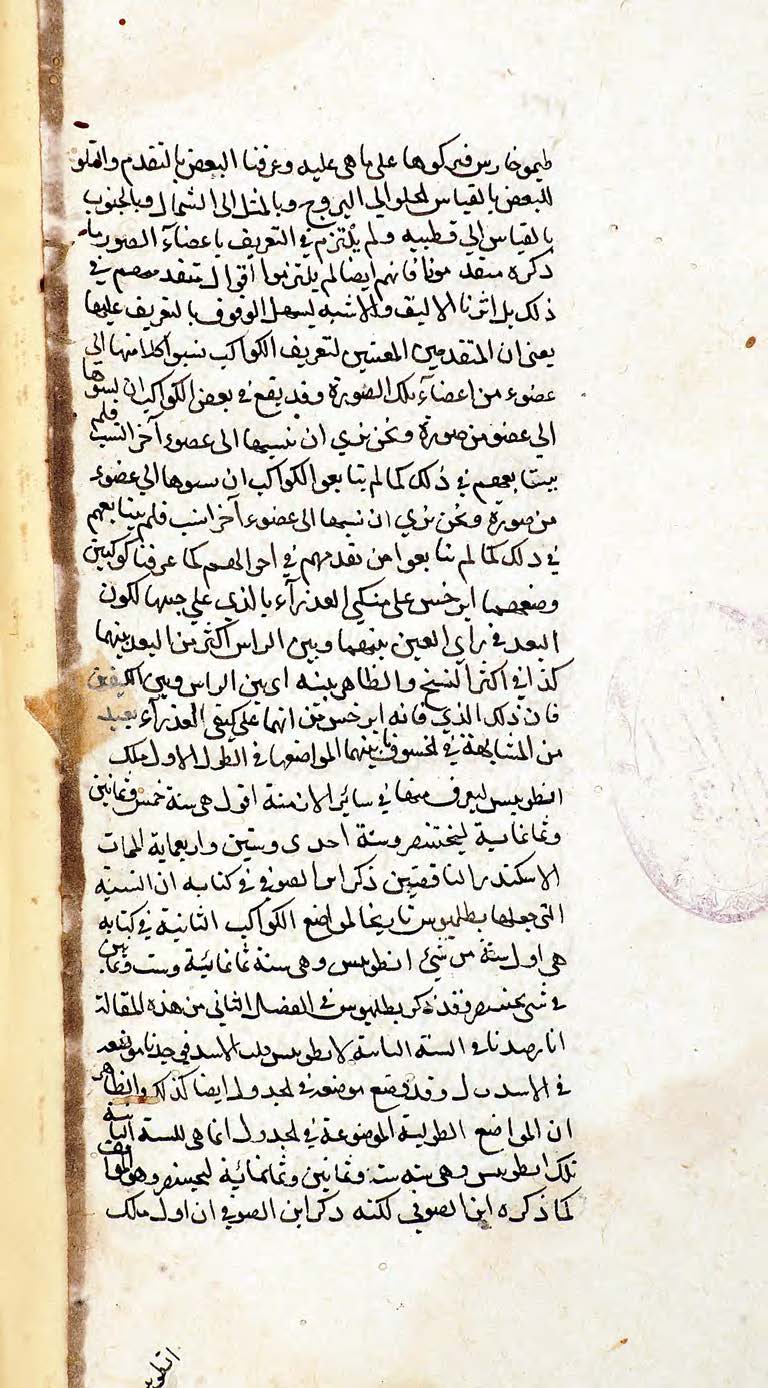 طيموخارس فيركوها على ما هى عليه وعرفنا البعض بالتقدم والتلو
للبعض بالقياس لحلو الي البروج وبالمثل الى الشمال وبالجنوب
بالقياس الي قطبيه ولم يلتزم في التعريف باعضآء الصور ما
ذكره متقدمونا فانهم ايضا لم يلتزموا اقوال متقدميهم في
ذلك بل اثرنا الاليق والاشبه ليسهل الوقوف بالتعريف عليها
يعنى ان المتقدمين المعتنين لتعريف الكواكب نسبوا كلا منها الى
عضوء من اعضآء تلك الصورة وقد يقع في بعض الكواكب ان نسبوها
الى عضو من صورة ونحن نري ان ننسبها الى عضوء آخر انسب فلم
يتابعهم في ذلك كما لم يتابعوا الكواكب ان نسبوها الي عضوء
من صورة ونحن نري ان ننسبها الى عضوء آخر انسب فلم يتابعهم
في ذلك كما لم يتابعوا من تقدمهم في احوالهم كما عرفنا كوكبين
وضعهما ابرخس على منكبي العذرآء بالذي علي جنبها لكون
البعد في راي العين بينهما وبين الراس اكثر من البعد بينهما
كذا في اكثر النسخ والظاهر بينه اى بين الراس وبين الكتفين
فان ذلك الذي قاله ابرخس من انهما على كتفي العذرآء بعيد
من المشابهة في المواضعها في الطول الاول ملك
انطونيس ليعرف منها في سائر الازمنة اقول هى سنة خمس وثمانين
وثمانماية لبختنصر وسنة احدى وستين واربعماية لممات
الاسكندر الناقصتين ذكر ابن الصوفي في كتابه ان السنة
التى جعلها بطلميوس تاريخا لمواضع الكواكب الثابتة في كتابه
هى اول سنة من سني انطونيس وهى سنة ثمانمائية وست وثمانين
في سني بختنصر وقد ذكر بطلميوس في الفصل الثاني من هذه المقالة
انا رصدنا في السنة الثانية لانطونيس قلب الاسد فوجدنا موضعه
في الاسد ب ل وقد وضع موضعه في الجدول ايضا كذلك والظاهر
ان المواضع الطولية الموضوعة في الجدول انما هى للسنة الثانية
لملك انطونيس وهى سنة ست وثمانين وثمانمائية لبختنصر وهو الموافق
لما ذكره ابن الصوفي لكنه ذكر ابن الصوفي ان اول ملك
انطونيس